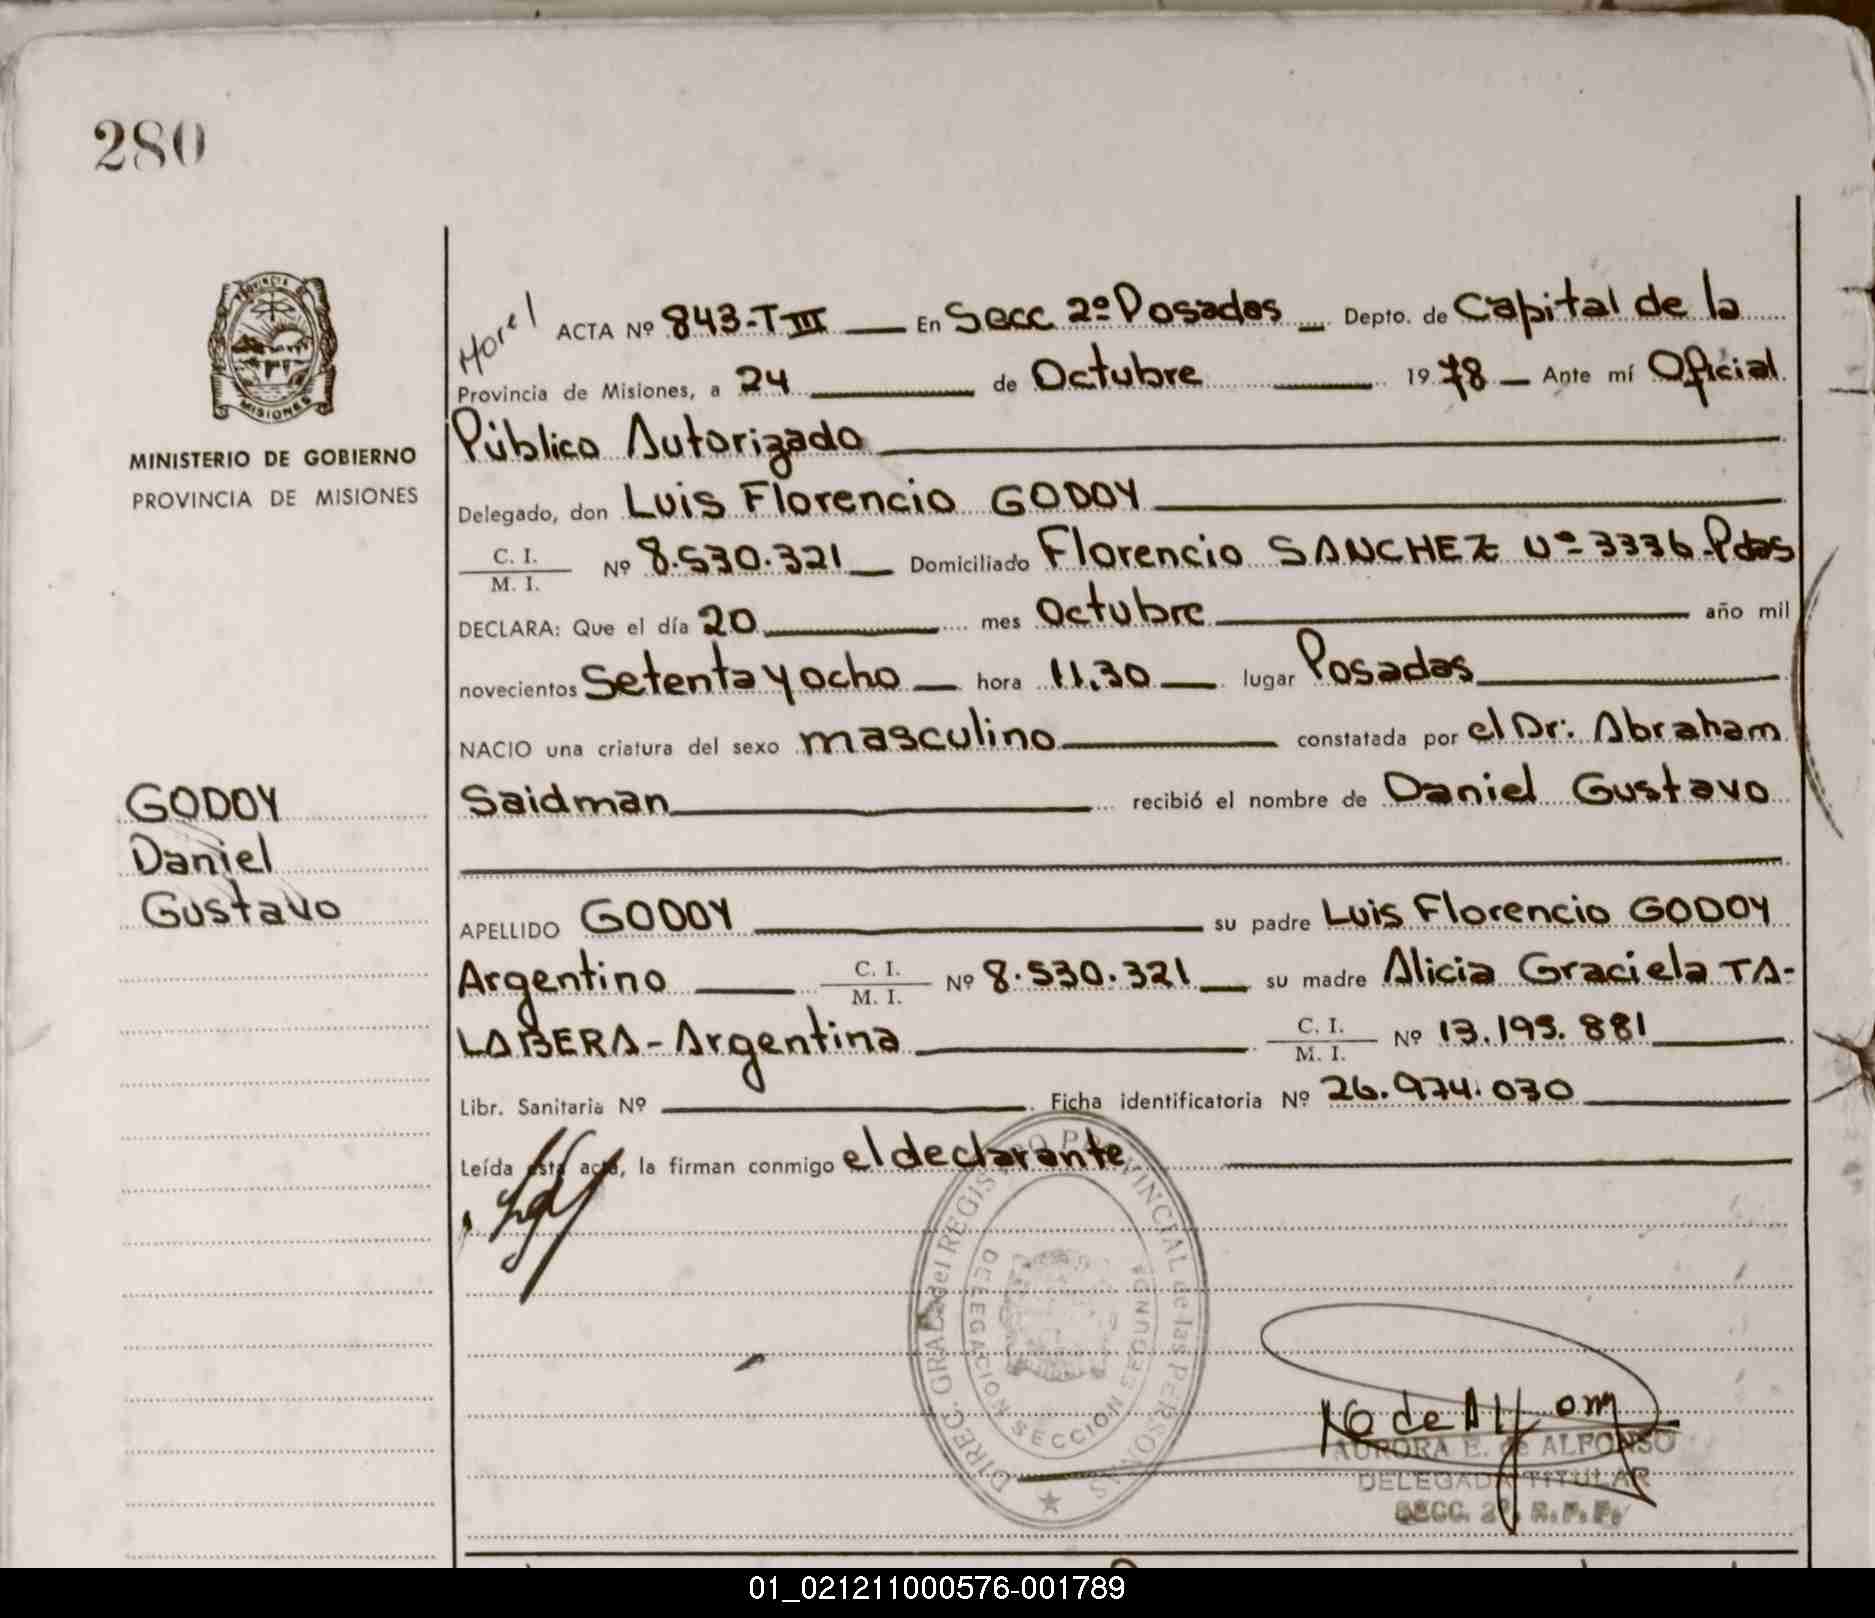 280
PROVINCIA DE
MISIONES
MINISTERIO DE GOBIERNO
PROVINCIA DE MISIONES
GODOY
Daniel
Gustavo
ACTA Nº 843-T III En Secc 2º Posadas Depto. de Capital de la
Provincia de Misiones, a 24 de Octubre 1978 Ante mí Oficial
Público Autorizado
Delegado, don Luis Florencio GODOY
C. I.
M. I. Nº 8.530.321 Domiciliado Florencio SANCHEZ Nº 3336 Pdas
DECLARA: Que el día 20 mes Octubre año mil
novecientos Setenta y ocho hora 11.30 lugar Posadas
NACIO una criatura del sexo masculino constatada por el Dr: Abraham
Saidman recibió el nombre de Daniel Gustavo
APELLIDO GODOY su padre Luis Florencio GODOY
Argentino C. I. M. I. Nº 8.530.321 su madre Alicia Graciela TA-
LABERA - Argentina C. I. M. I. Nº 13.195.881
Libr. Sanitaria Nº Ficha identificatoria Nº 26.974.030
Leída esta acta, la firman conmigo el declarante
DIREC. GRAL. del REGISTRO PROVINCIAL de las PERSONAS
DELEGACION SECCION SEGUNDA
AURORA E. de ALFONSO
DELEGADA TITULAR
SECC. 2ª. R. P. P.
01_021211000576-001789